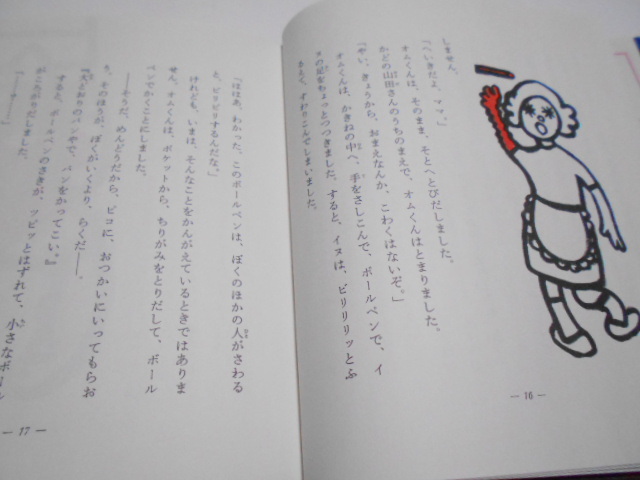 しません。
「へいきだよ、ママ。」
オムくんは、そのまま、そとへとびだしました。
かどの山田さんのうちのまえで、オムくんはとまりました。
「やい、きょうから、おまえなんか、こわくはないぞ。」
オムくんは、かきねの中へ、手をさしこんで、ボールペンで、イ
ヌの足をちょっとつつきました。すると、イヌは、ビリリリッとふ
るえて、すわりこんでしまいました。
— 16 —
「ははあ、わかった。このボールペンは、ぼくのほかの人がさわる
と、ビリビリするんだな。」
けれども、いまは、そんなことをかんがえているときではありま
せん。オムくんは、ポケットから、ちりがみをとりだして、ボール
ペンでかくことにしました。
——そうだ。めんどうだから、ピコに、おつかいにいってもらお
う。そのほうが、ぼくがいくより、らくだ——。
『大どおりのパンやで、パンをかってこい。』
すると、ボールペンのさきが、ツピッとはずれて、小さなボール
がころがりだしました。
— 17 —